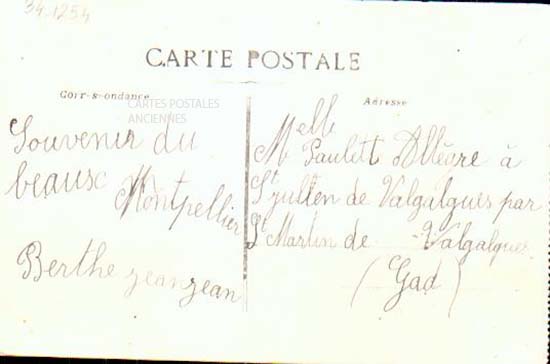 34-1254
CARTE POSTALE
Corr-s-ondance
CARTES POSTALES
ANCIENNES
Souvenir du
beausc
Montpellier
Berthe jeanjean
Adresse
Melle
Paulett Allègre à
St julien de Valgalgues par
St Martin de Valgalgues
(Gad)